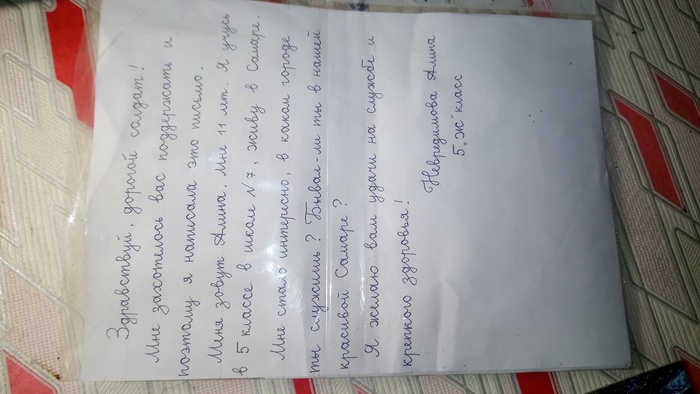 Здравствуй, дорогой солдат!
Мне захотелось вас поддержать и
поэтому я написала это письмо.
Меня зовут Алина. Мне 11 лет. Я учусь
в 5 классе в школе №7, живу в Самаре.
Мне стало интересно, в каком городе
ты служишь? Бывал-ли ты в нашей
красивой Самаре?
Я желаю вам удачи на службе и
крепкого здоровья!
Невредимова Алина
5 „Ж" класс